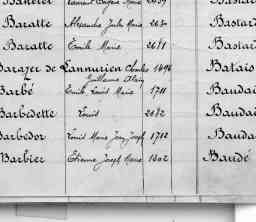 Baratte Alexandre Jules Marie 2630 Bastar
Baratte Emile Marie 2681 Bastar
Barazer de Lannurien Charles 1496 Batais
Guillaume Alain
Barbé Emile Louis Marie 1711 Baudai
Barbedette Louis 2082 Baudai
Barbedor Louis Marie Jean Joseph 1712 Bauda
Barbier Etienne Joseph Marie 1802 Baudé